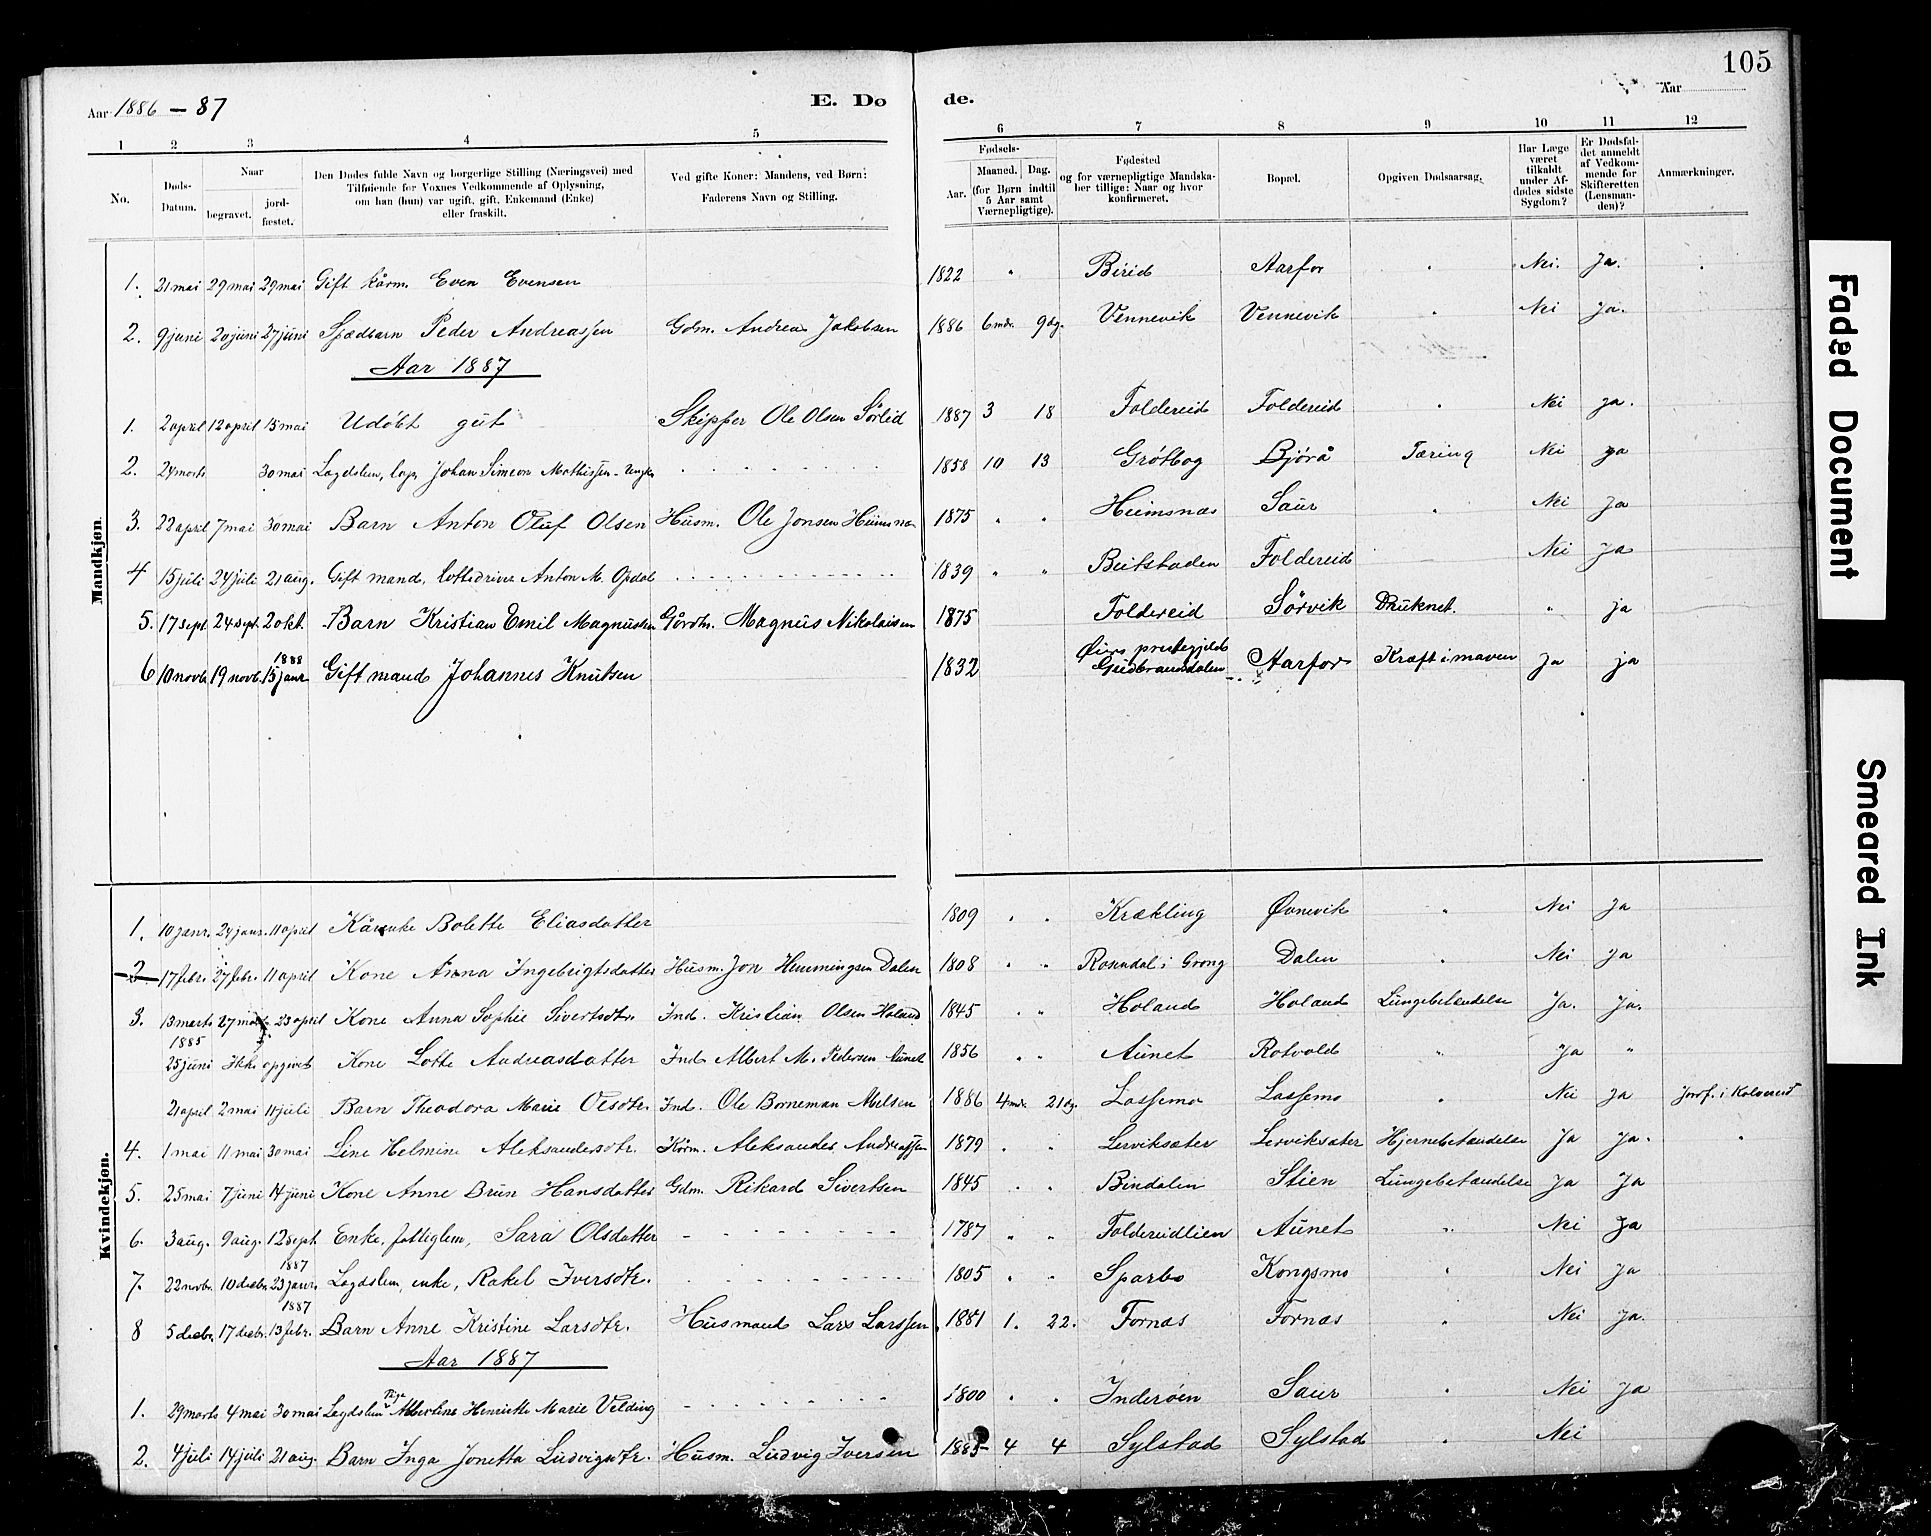 105
Aar 1886 – 87 E. Dø de. Aar
1 2 3 4 5 6 7 8 9 10 11 12
No. Døds-Datum. Naar begravet. jordfæstet. Den Dødes fulde Navn og borgerlige Stilling (Næringsvei) med Tilføiende for Voxnes Vedkommende af Oplysning, om han (hun) var ugift, gift, Enkemand (Enke) eller fraskilt. Ved gifte Koner: Mandens, ved Børn: Faderens Navn og Stilling. Fødsels- Aar. Maaned. Dag. (for Børn indtil 5 Aar samt Værnepligtige). Fødested og for værnepligtige Mandskaber tillige: Naar og hvor konfirmeret. Bopæl. Opgiven Dødsaarsag. Har Læge været tilkaldt under Afdødes sidste Sygdom? Er Dødsfaldet anmeldt af Vedkommende for Skifteretten (Lensmanden)? Anmærkninger.
Mandkjøn.
1. 21 mai 29 mai 29 mai Gift kårm. Even Evensen 1822 " Birid Aarfor " Nei. Ja.
2. 9 juni 20 juni 27 juni Spædbarn Peder Andreassen Gdm. Andreas Jakobsen 1886 6 mdr. 9 dg. Vennevik Vennevik " Nei Ja.
Aar 1887
1. 2 april 12 april 15 mai Udöbt gut Skipper Ole Olsen Sörlid 1887 3 18 Foldereid Foldereid " Nei ja.
2. 24 marts 30 mai Lægdslem, Johan Simeon Mathissen - Ungk. 1858 10 13 Grötbog Björå Tæring Nei ja
3. 22 april 7 mai 30 mai Barn Anton Oluf Olsen Husm. Ole Jonsen Heimsnæs 1875 " " Heimsnæs Saur " Nei ja
4 15 juli 24 juli 21 aug. Gift mand, Anton M. Opdal 1839 " " Beitstaden Foldereid Nei ja
5. 17 sept. 24 sept. 2 okt. Barn Kristian Emil Magnussen Gårdm. Magnus Nikolaisen 1875 Foldereid Sörvik Druknet. " ja
6 10 novb. 19 novb. 1888 15 janr. Gift mand Johannes Knutsen 1832 Øiers prestegjeld Gudbrandsdalen Aarfor Kræft i maven ja ja
Kvindekjøn.
1. 10 janr. 24 janr. 11 april Kårenke Bolette Eliasdatter 1809 " " Krækling Øvnevik " Nei ja
2 17 febr. 27 febr. 11 april Kone Anna Ingebrigtsdatter Husm. Jon Hemmingsen Dalen 1808 " " Rosendal i Grong Dalen " Nei ja
3. 13 marts 27 marts 23 april Kone Anna Sophie Sivertsdtr. Ind. Kristian Olsen Holand 1845 " " Holand Holand Lungebetændelse Ja. Ja.
1885 25 juni Ikke opgivet Kone Lotte Andreasdatter Ind. Albert M. Pedersen Aunet 1856 " " Aunet Rotvold " Ja "
21 april 2 mai 11 juli Barn Theodora Marie Olsdtr. Ind. Ole Borneman Nielsen 1886 4 mdr. 21 dg. Lassemo Lassemo " Nei ja Jordf. i Kolvereid
4. 1 mai 11 mai 30 mai Line Helmine Aleksandersdtr. Kårm. Aleksander Andreassen 1879 " " Lerviksæter Lerviksæter Hjernebetændelse Ja Ja. "
5. 25 mai 7 juni 14 juni Kone Anne Brun Hansdatter Gdm. Rikard Sivertsen 1845 " " Bindalen Stien Lungebetændelse Ja Ja
6. 3 aug. 9 aug. 12 sept. Enke, fattiglem, Sara Olsdatter 1787 " " Foldereidlien Aunet " Nei Ja
7. 22 novbr. 10 decbr. 1887 23 janr. Lægdslem, enke, Rakel Iversdtr. 1805 " " Sparbo Kongsmo " Nei ja
8 5 decbr. 17 decbr. 1887 13 febr. Barn Anne Kristine Larsdtr. Husmand Lars Larssen 1881 1. 22. Fornæs Fornæs " Nei ja.
Aar 1887
1. 29 marts 4 mai 30 mai Lægdslem Pige Albertine Henriette Marie Velding 1800 " " Inderøen Saur " Nei ja
2. 4 juli 14 juli 21 aug. Barn Inga Jonetta Ludvigsdtr. Husm. Ludvig Iversen 1885 4 4 Sylstad Sylstad " Nei
Faded Document
Smeared Ink